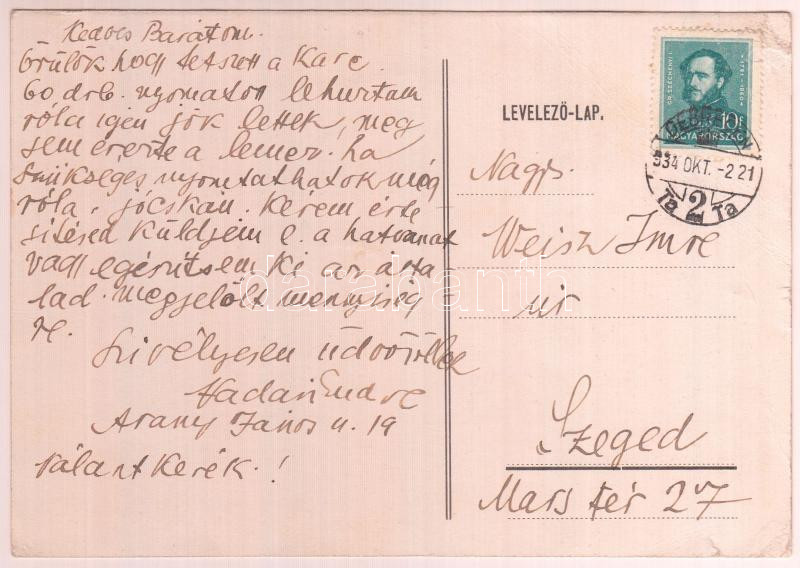 Kedves Barátom.
Örülök hogy tetszett a Karc
60 drb. nyomaton lehuztam
róla igen jók lettek, meg
sem érezte a lemez. ha
szükséges nyomtathatok még
róla, jócskán. Kérem érte
sitésed küldjem e. a hatvanat
vagy egészitsem ki az álta
lad. megjelölt mennyiség
re.
Szivélyesen üdvözöllek
Vadász Endre
Arany János u. 19
Választ kérek.!
LEVELEZŐ-LAP.
GR. SZÉCHENYI I. 1791-1860
10f
MAGYARORSZÁG
DEBRECEN
934 OKT. -2 21
2
Ta Ta
Nagys.
Weisz Imre
úr
Szeged
Mars tér 27
darabanth